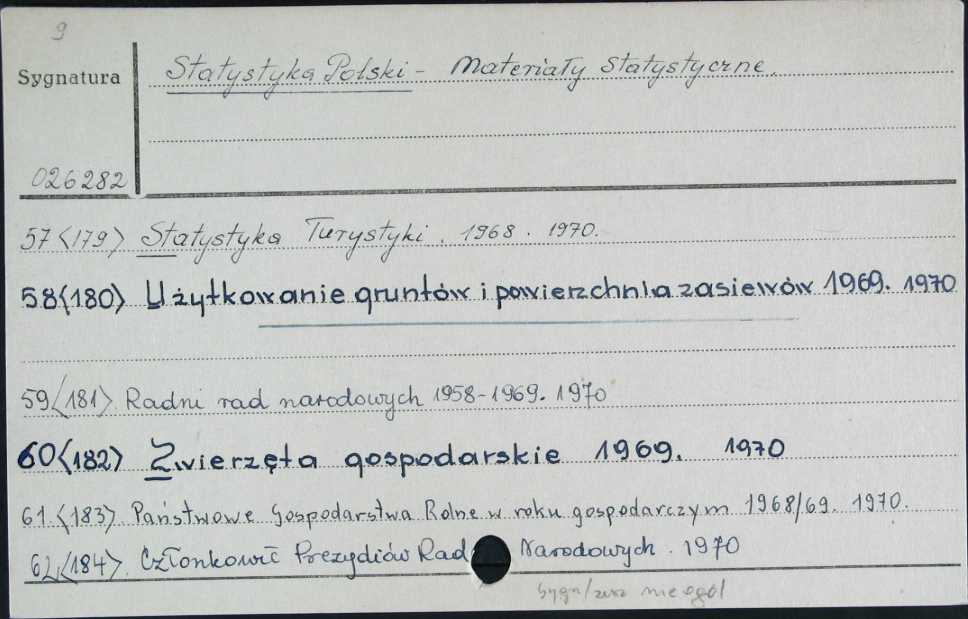 9
Sygnatura
Statystyka Polski - Materiały Statystyczne.
026282
57<179> Statystyka Turystyki. 1968. 1970.
58<180> Użytkowanie gruntów i powierzchnia zasiewów 1969. 1970
59<181> Radni rad narodowych 1958-1969. 1970
60<182> Zwierzęta gospodarskie 1969. 1970
61.<183> Państwowe Gospodarstwa Rolne w roku gospodarczym 1968/69. 1970.
62<184>. Członkowie Prezydiów Rad Narodowych. 1970